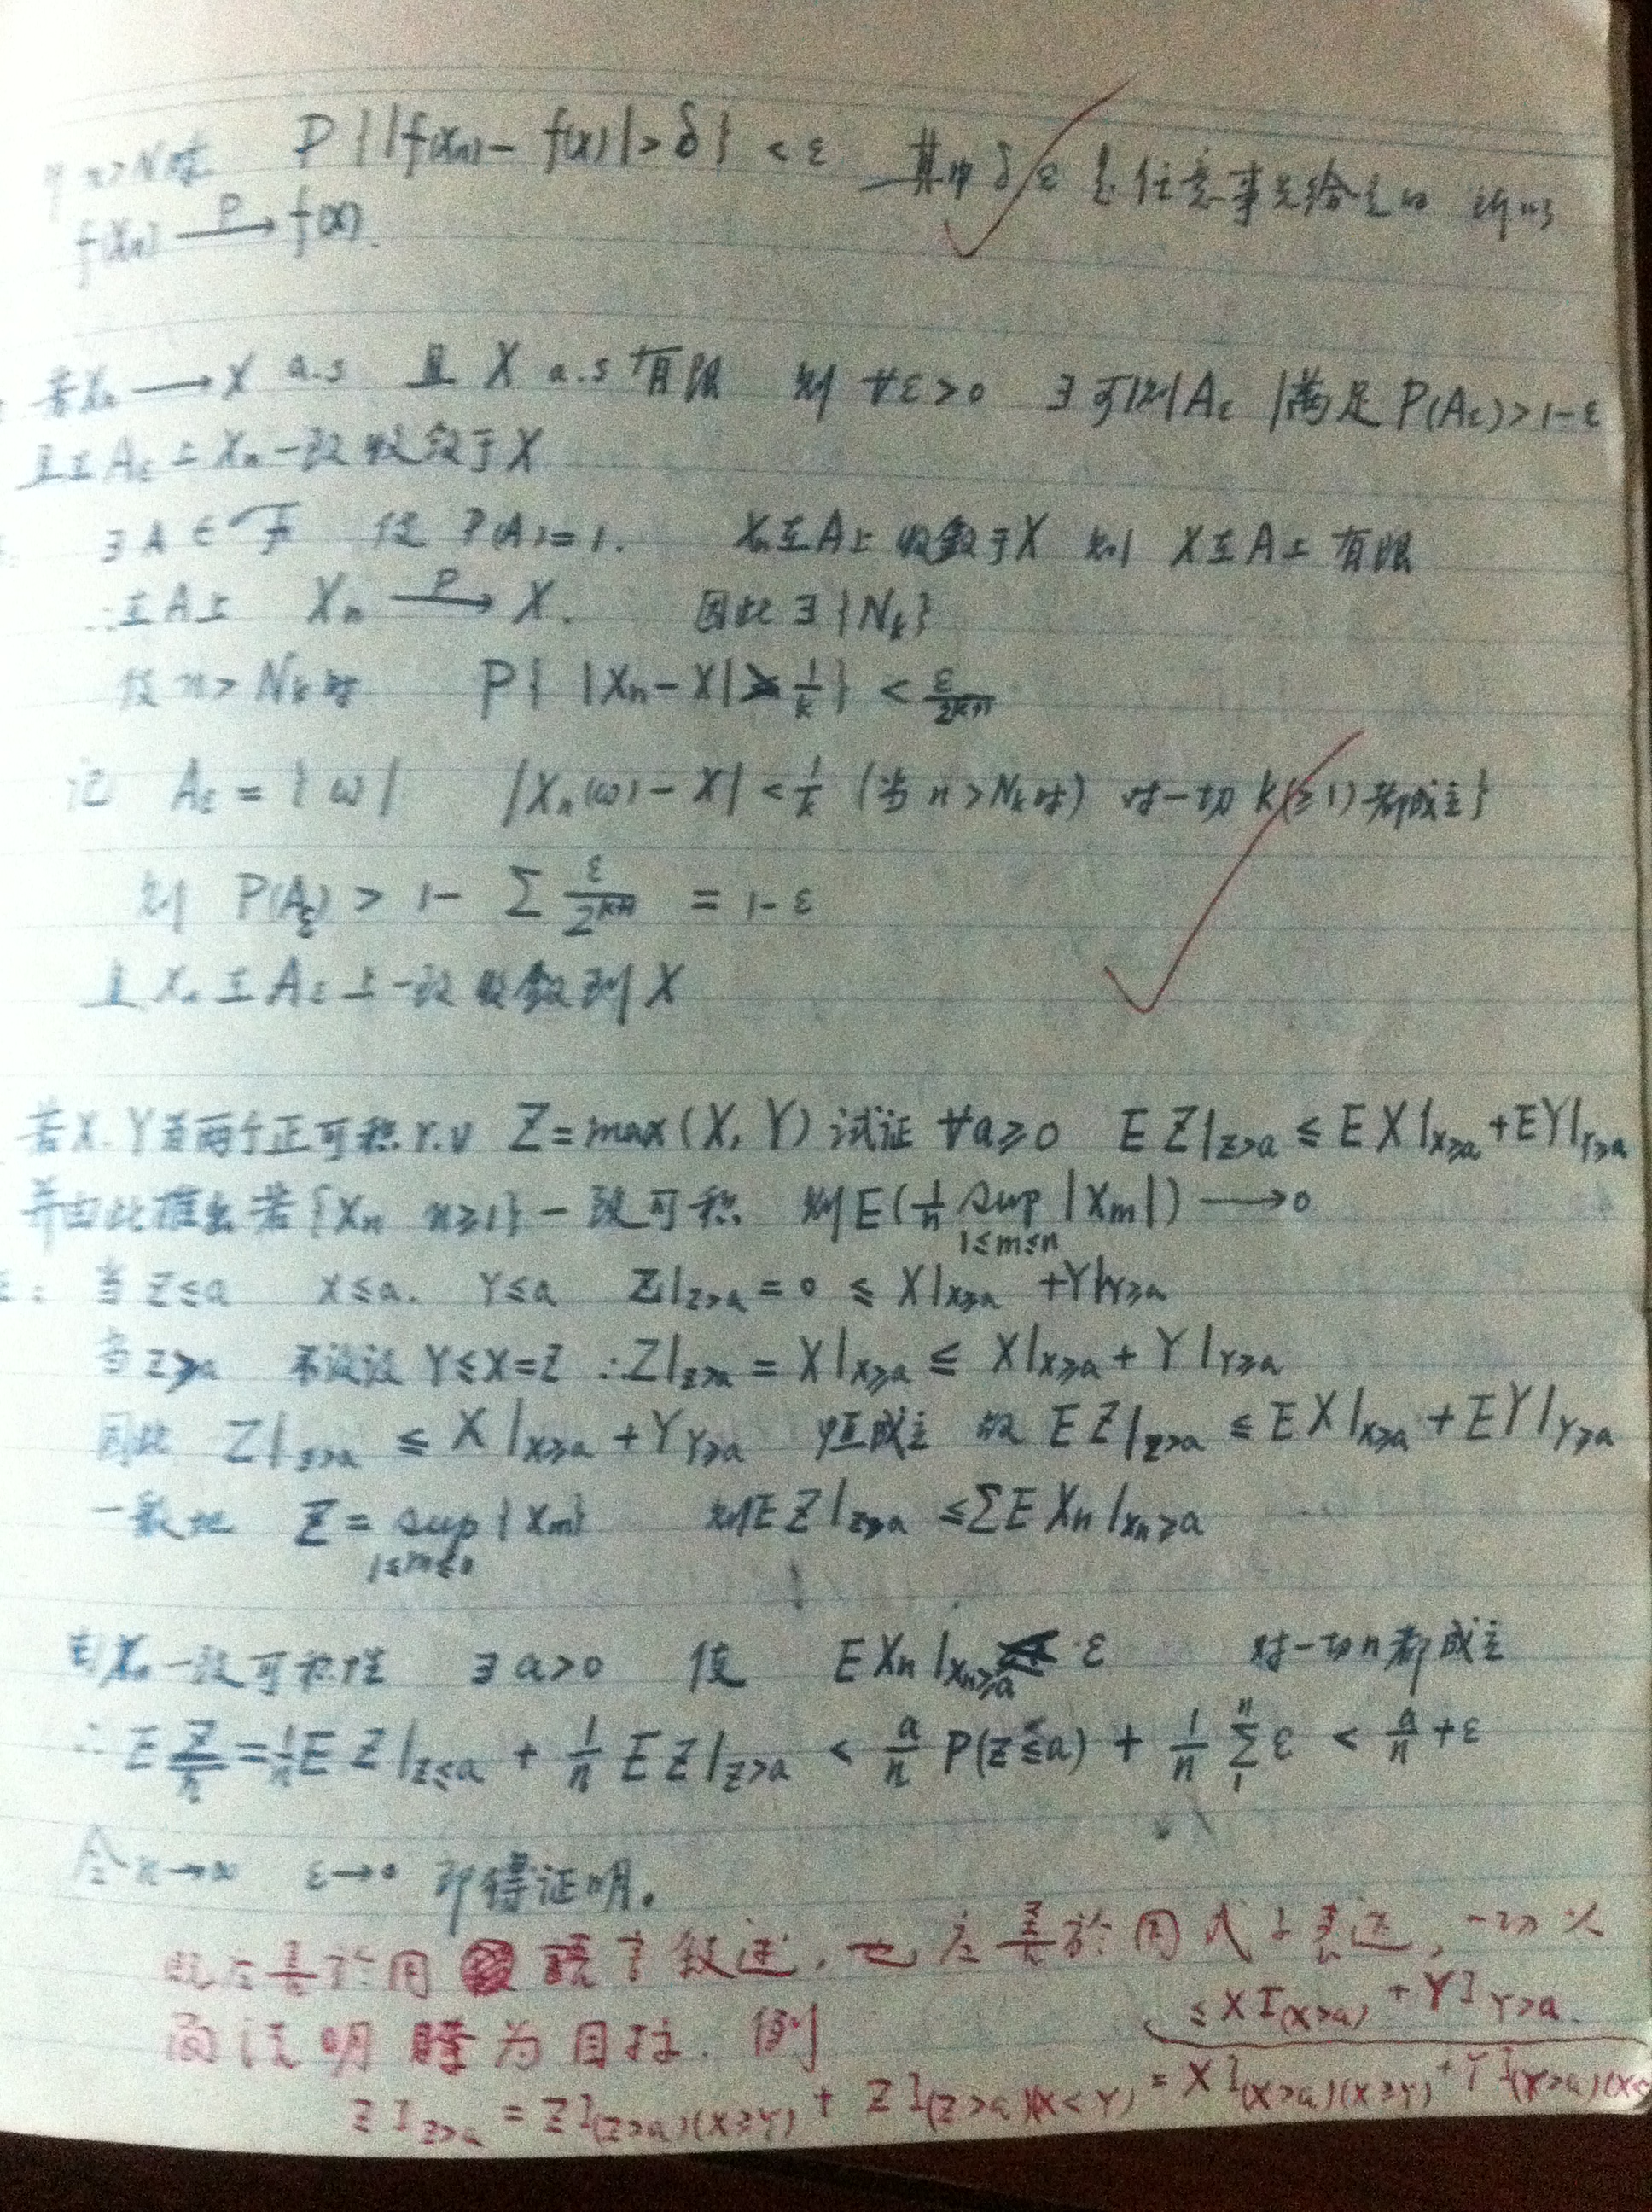 n>N时 P{|f(Xn)-f(X)|>δ}<ε 其中δ ε是任意事先给定的 所以
f(Xn) —P→ f(X).
若Xn→X a.s 且 X a.s有限 则 ∀ε>0 ∃可测Aε 满足P(Aε)>1-ε
且在Aε上Xn一致收敛于X
∃A∈F 使 P(A)=1. Xn在A上收敛于X 则 X在A上有限
∴在A上 Xn —P→ X. 因此∃{Nk}
使n>Nk时 P{|Xn-X|≥1/k}<ε/2^{k+1}
记 Aε={ω| |Xn(ω)-X|<1/k (当n>Nk时) 对一切k(≥1)都成立}
则 P(Aε)>1-Σ ε/2^{k+1} = 1-ε
且Xn在Aε上一致收敛到X
若X.Y为两个正可积r.v Z=max(X,Y) 试证 ∀a≥0 EZ|z>a ≤ EX|x≥a+EY|Y≥a
并由此推出若{Xn n≥1}一致可积 则E(1/n sup 1≤m≤n |Xm|)→0
: 当Z≤a X≤a. Y≤a Z|z>a=0≤X|x≥a+Y|Y≥a
当Z>a 不妨设Y≤X=Z ∴Z|z>a=X|x≥a≤X|x≥a+Y|Y≥a
因此 Z|z>a≤X|x≥a+Y Y≥a 恒成立 故 EZ|z>a≤EX|x≥a+EY|Y≥a
一般地 Z=sup 1≤m≤n {Xm} 则EZ|z>a≤ΣEXn|xn≥a
由Xn一致可积性 ∃a>0 使 EXn|xn≥a<ε 对一切n都成立
∴E Z/n=1/n EZ|z≤a+1/n EZ|z>a<a/n P(z≤a)+1/n Σ_1^n ε<a/n+ε
令n→∞ ε→0 即得证明.
既应善於用 語言叙述, 也应善於用式子表达, 一切以
简洁明瞭为目标. 例
≤XI(X>a)+YI Y>a.
ZI z>a=ZI(z>a)(X≥Y)+ZI(z>a)(X<Y)=XI(X>a)(X≥Y)+YI(Y>a)(X<